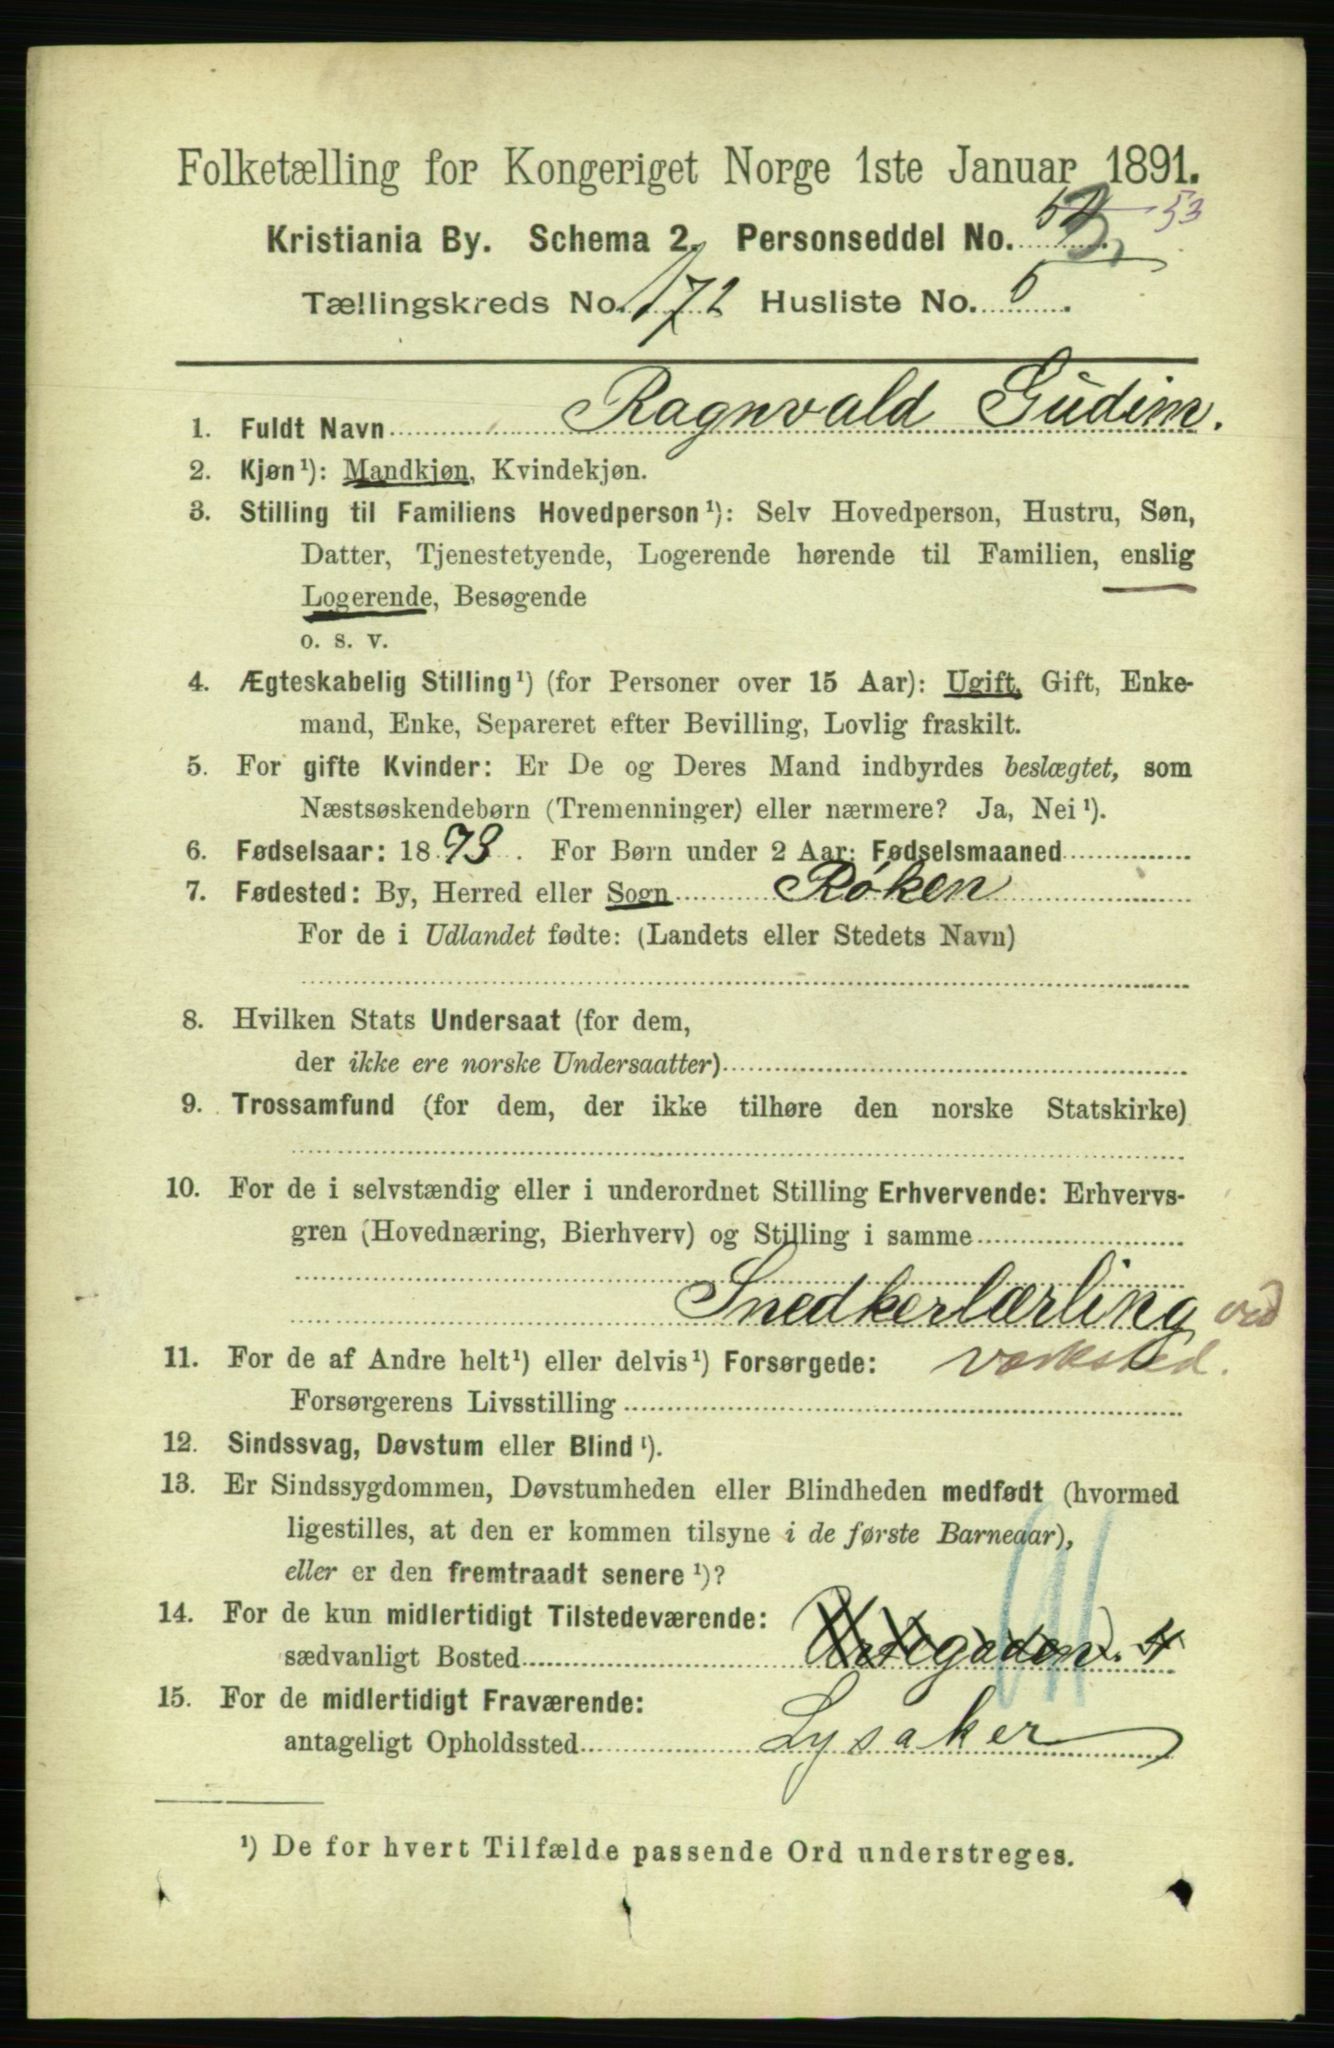 Folketælling for Kongeriget Norge 1ste Januar 1891.
Kristiania By. Schema 2. Personseddel No. 53
Tællingskreds No. 172 Husliste No. 6.
1. Fuldt Navn Ragnvald Gudim.
2. Kjøn¹): Mandkjøn, Kvindekjøn.
3. Stilling til Familiens Hovedperson¹): Selv Hovedperson, Hustru, Søn,
Datter, Tjenestetyende, Logerende hørende til Familien, enslig
Logerende, Besøgende
o. s. v.
4. Ægteskabelig Stilling¹) (for Personer over 15 Aar): Ugift, Gift, Enke-
mand, Enke, Separeret efter Bevilling, Lovlig fraskilt.
5. For gifte Kvinder: Er De og Deres Mand indbyrdes beslægtet, som
Næstsøskendebørn (Tremenninger) eller nærmere? Ja, Nei¹).
6. Fødselsaar: 1873. For Børn under 2 Aar: Fødselsmaaned
7. Fødested: By, Herred eller Sogn Røken
For de i Udlandet fødte: (Landets eller Stedets Navn)
8. Hvilken Stats Undersaat (for dem,
der ikke ere norske Undersaatter)
9. Trossamfund (for dem, der ikke tilhøre den norske Statskirke)
10. For de i selvstændig eller i underordnet Stilling Erhvervende: Erhvervs-
gren (Hovednæring, Bierhverv) og Stilling i samme
Snedkerlærling ved
11. For de af Andre helt¹) eller delvis¹) Forsørgede: værksted.
Forsørgerens Livsstilling
12. Sindssvag, Døvstum eller Blind¹).
13. Er Sindssygdommen, Døvstumheden eller Blindheden medfødt (hvormed
ligestilles, at den er kommen tilsyne i de første Barneaar),
eller er den fremtraadt senere¹)?
14. For de kun midlertidigt Tilstedeværende:
sædvanligt Bosted 4
15. For de midlertidigt Fraværende:
antageligt Opholdssted Lysaker
¹) De for hvert Tilfælde passende Ord understreges.